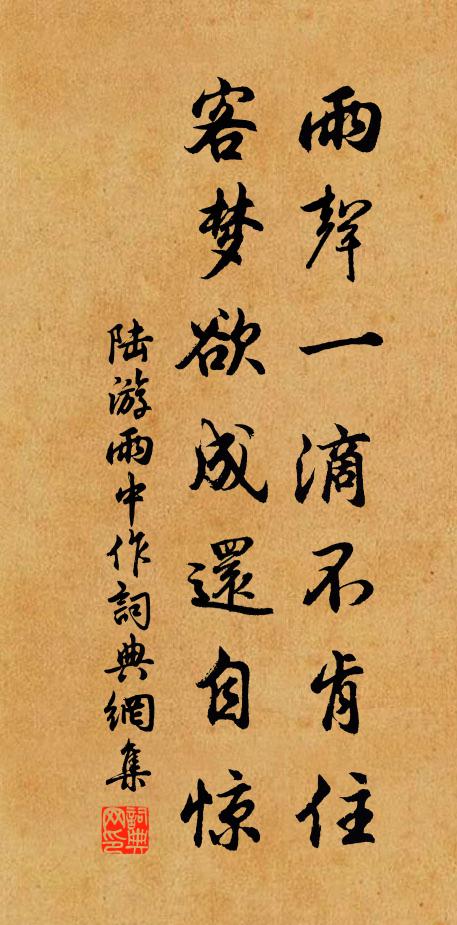 雨聲一滴不肯住
客梦欲成還自惊
陆游雨中作詞典網集
詞典網印